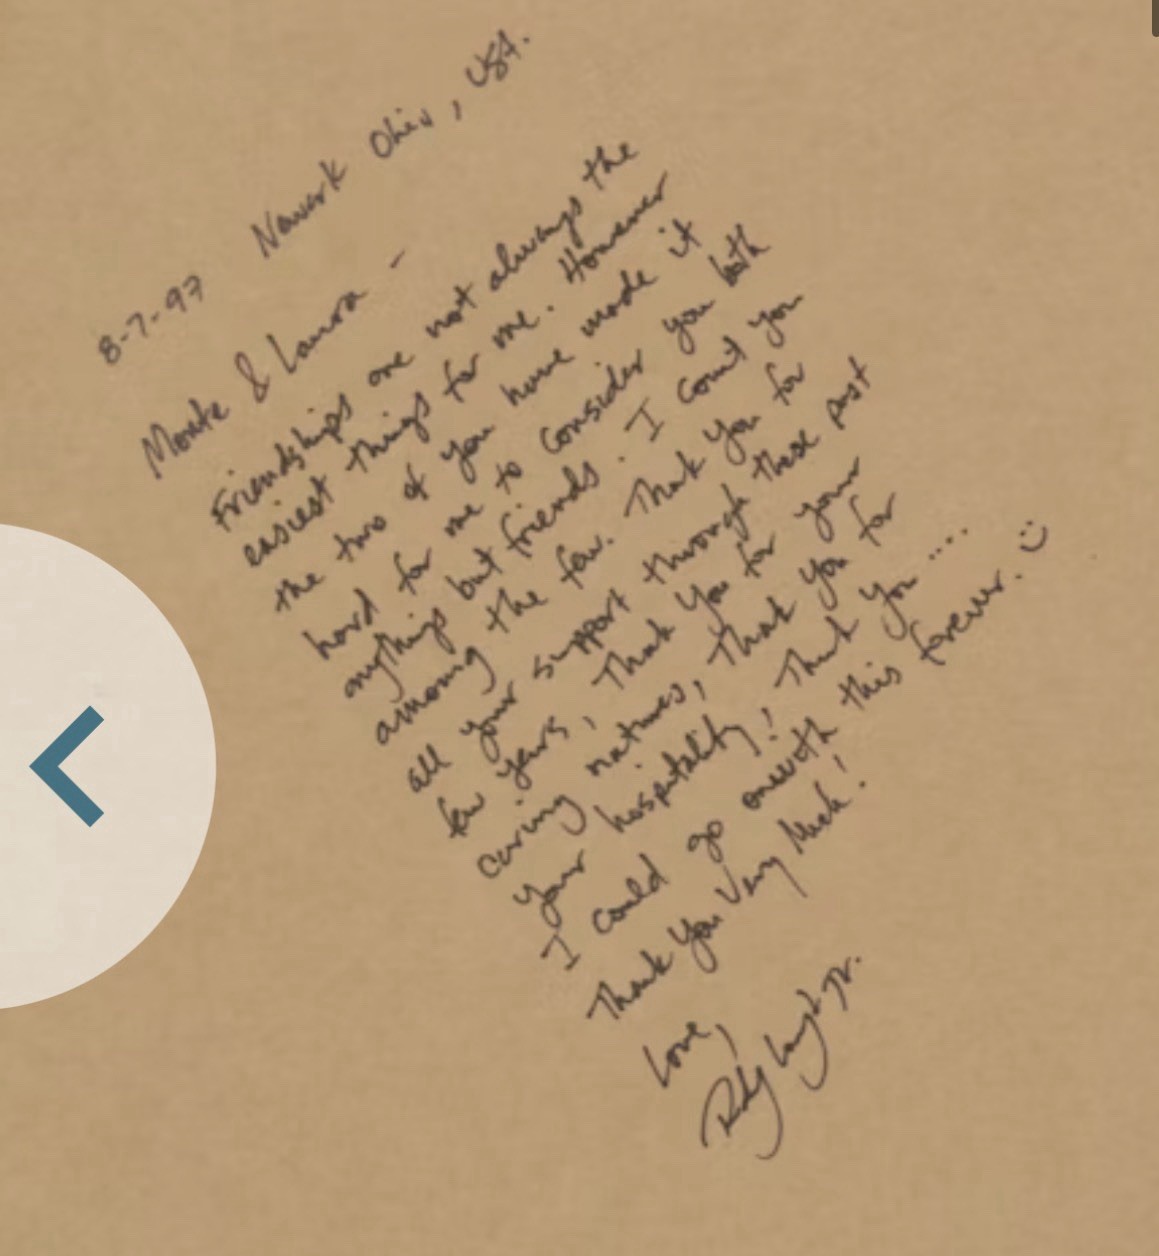 8-7-97 Newark Ohio, USA.
Monte & Laura -
Friendships are not always the
easiest things for me. However
the two of you have made it
hard for me to consider you both
anythings but friends. I count you
among the few. Thank you for
all your support through these past
few years, Thank you for your
caring natures, Thank you for
your hospitality! Thank you ....
I could go on with this forever. :)
Thank You Very Much!
Love,
Jr.